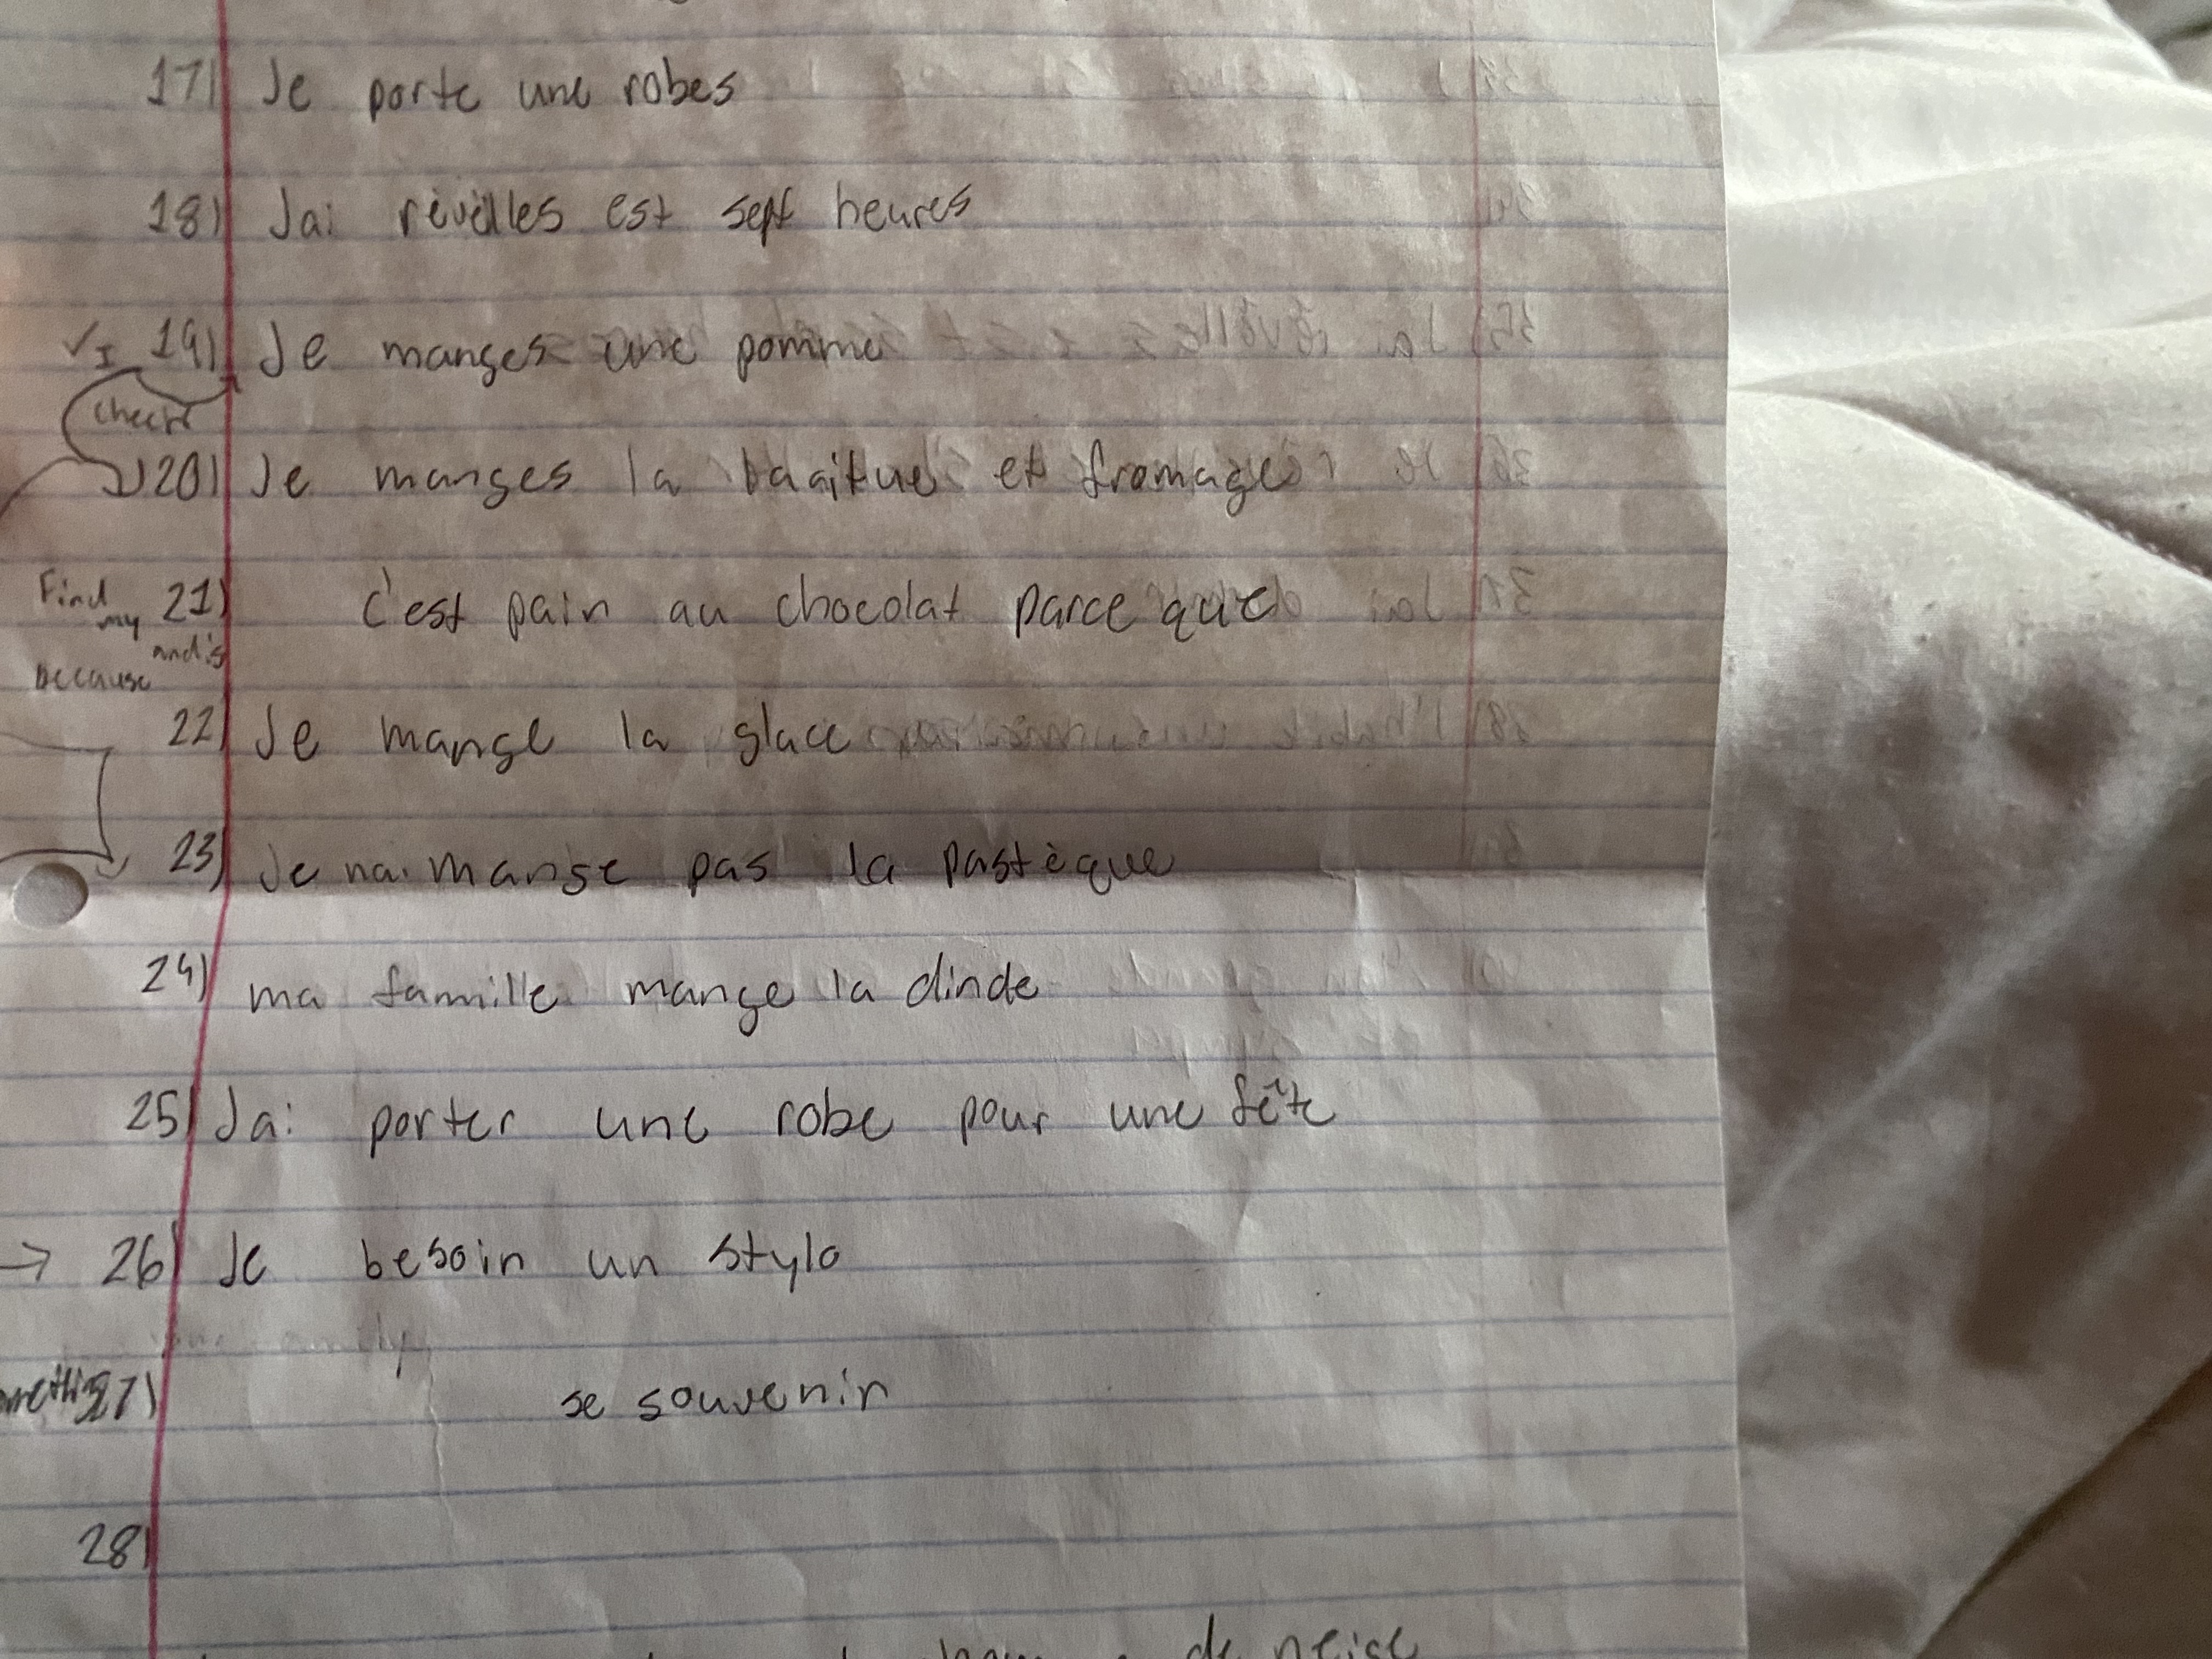 17) Je porte une robes
18) Jai révèlles est sept heures
✓I 19) Je manges une pomme
check
20) Je manges la baaitue et fromage
Find my and's 21) c'est pain au chocolat parce que
because
22) Je mange la glace
23) Je nai mange pas la pastèque
24) ma famille mange la dinde
25) Jai porter une robe pour une fête
→ 26) Je besoin un stylo
27) se souvenir
28)
de neige